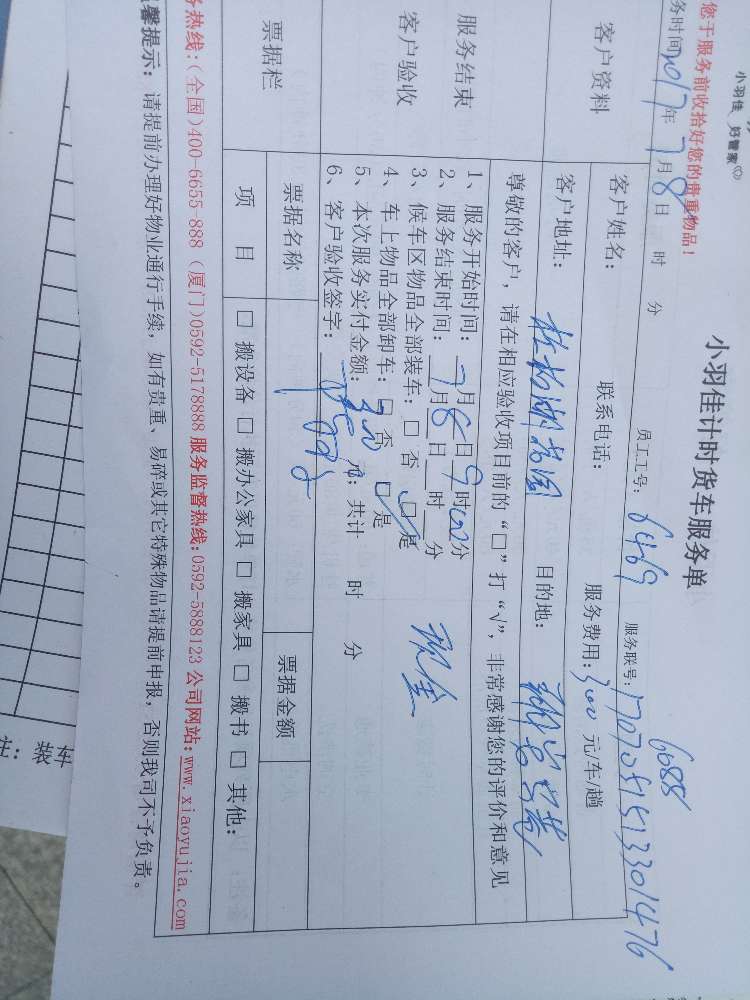 小羽佳 好管家
小羽佳计时货车服务单
您于服务前收拾好您的贵重物品！
员工工号：6469 服务联号：1707051513301476
6688
务时间2017年7月8日 时 分
客户资料
客户姓名： 联系电话： 服务费用：300元/车/趟
客户地址： 目的地：
服务结束
客户验收
尊敬的客户，请在相应验收项目前的“□”打“√”，非常感谢您的评价和意见
1、服务开始时间：7月8日9时00分
2、服务结束时间：7月8日 时 分
3、候车区物品全部装车：□否 □是
4、车上物品全部卸车：□否 □是
现金
5、本次服务实付金额：300元，共计 时 分
6、客户验收签字：
票据栏
票据名称 票据金额
项 目 □搬设备 □搬办公家具 □搬家具 □搬书 □其他：
务热线：(全国)400-6655-888 (厦门)0592-5178888 服务监督热线：0592-5888123 公司网站：www.xiaoyujia.com
馨提示：请提前办理好物业通行手续，如有贵重、易碎或其它特殊物品请提前申报，否则我司不予负责。
注：装车